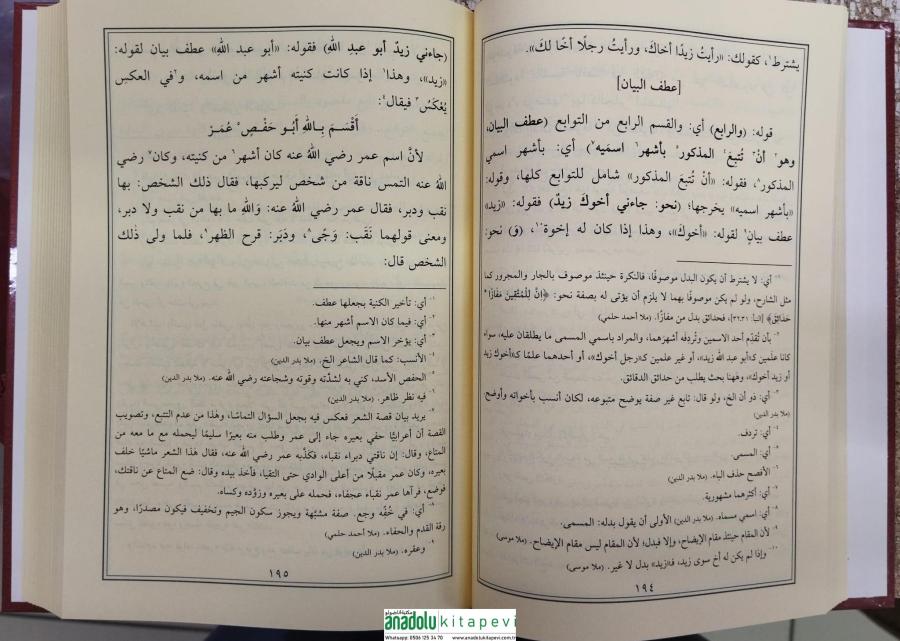 يشترط¹، كقولك: «رأيتُ زيدًا أخاك، ورأيتُ رجلًا أخًا لك».
[عطف البيان]
قوله: (والرابع) أي: والقسم الرابع من التوابع (عطف البيان،
وهو² أنْ³ تُتبعَ⁴ المذكور⁵ بأشهر⁶ اسميه⁷) أي: بأشهر اسمي
المذكور⁸، فقوله: «أنْ تُتبعَ المذكور» شامل للتوابع كلها، وقوله:
«بأشهر اسميه» يخرجها؛ (نحو: جاءني أخوكَ زيدٌ) فقوله: «زيد»
عطف بيانٍ⁹ لقوله: «أخوك»، وهذا إذا كان له إخوة¹⁰، (وَ) نحو:
أي: لا يشترط أن يكون البدل موصوفًا، فالنكرة حينئذ موصوف بالجار والمجرور كما
مثل الشارح، ولو لم يكن موصوفًا بهما لا يلزم أن يؤتى له بصفة نحو: ﴿إِنَّ لِلْمُتَّقِينَ مَفَازًا *
حَدَائِقَ﴾ [النبأ: ٣١-٣٢]، فحدائق بدل من مفازًا. (ملا أحمد حلمي)
بأن تُقدِّم أحد الاسمين وتُردِفه أشهرَهما، والمراد باسمي المسمى ما يطلقان عليه، سواء
كانا علمين كـ«أبو عبد الله زيد»، أو غير علمين كـ«رجل أخوك»، أو أحدهما علمًا كـ«أخوك زيد
أو زيد أخوك»، وههنا بحث يطلب من حدائق الدقائق.
أي: ذو أن الخ، ولو قال: تابع غير صفة يوضح متبوعه، لكان أنسب بأخواته وأوضح
(ملا بدر الدين)
أي: تردف.
أي: المسمى.
الأفصح حذف الباء. (ملا بدر الدين)
أي: أكثرهما مشهورية.
أي: اسمي مسماه. (ملا بدر الدين) الأولى أن يقول بدله: المسمى.
لأن المقام حينئذ مقام الإيضاح، وإلا فبدل؛ لأن المقام ليس مقام الإيضاح. (ملا موسى)
وإذا لم يكن له أخ سوى زيد، فـ«زيد» بدل لا غير. (ملا موسى)
١٩٤
(جاءني زيدٌ أبو عبدِ اللهِ) فقوله: «أبو عبد اللهِ» عطف بيان لقوله:
«زيد»، وهذا¹ إذا كانت كنيته أشهر من اسمه، و²في العكسِ
يُعْكَسُ³ فيقال⁴:
أَقْسَمَ بِاللهِ أَبُو حَفْصٍ⁵ عُمَرْ
لأنَّ اسم عمر رضي اللهُ عنه كان أشهر⁶ من كنيته، وكان⁷ رضي
اللهُ عنه التمس ناقة من شخص ليركبها، فقال ذلك الشخص: بها
نقب ودبر، فقال عمر رضي اللهُ عنه: وَاللهِ ما بها من نقب ولا دبر،
ومعنى قولهما نَقَب: وَجًى⁸، ودَبَر: قرح الظهر⁹، فلما ولى ذلك
الشخص قال:
أي: تأخير الكنية بجعلها عطف.
أي: فيما كان الاسم أشهر منها.
أي: يؤخر الاسم ويجعل عطف بيان.
الأنسب: كما قال الشاعر الخ. (ملا بدر الدين)
الحفص الأسد، كني به لشدّته وقوته وشجاعته رضي الله عنه. (ملا بدر الدين)
فيه نظر ظاهر. (ملا بدر الدين)
يريد بيان قصة الشعر فعكس فيه بجعل السؤال التماسًا، وهذا من عدم التتبع، وتصويب
القصة أن أعرابيًّا حفي بعيره جاء إلى عمر وطلب منه بعيرًا سليمًا ليحمله مع ما معه من
المتاع، وقال: إن ناقتي دبراء نقباء، فكذَّبه عمر رضي الله عنه، فقال هذا الشعر ماشيًا خلف
بعيره، وكان عمر مقبلًا من أعلى الوادي حتى التقيا، فأخذ بيده وقال: ضع المتاع عن ناقتك،
فوضع، فرآها عمر نقباء عجفاء، فحمله على بعيره وزوّده وكساه.
أي: في خُفِّه وجع. صفة مشبّهة ويجوز سكون الجيم وتخفيف فيكون مصدرًا، وهو
رقة القدم والحفاء. (ملا أحمد حلمي)
وعقره. (ملا بدر الدين)
١٩٥
مكتبة اناضولو
anadolukitapevi
Whatsapp: 0506 125 34 70 www.anadolukitapevi.com.tr